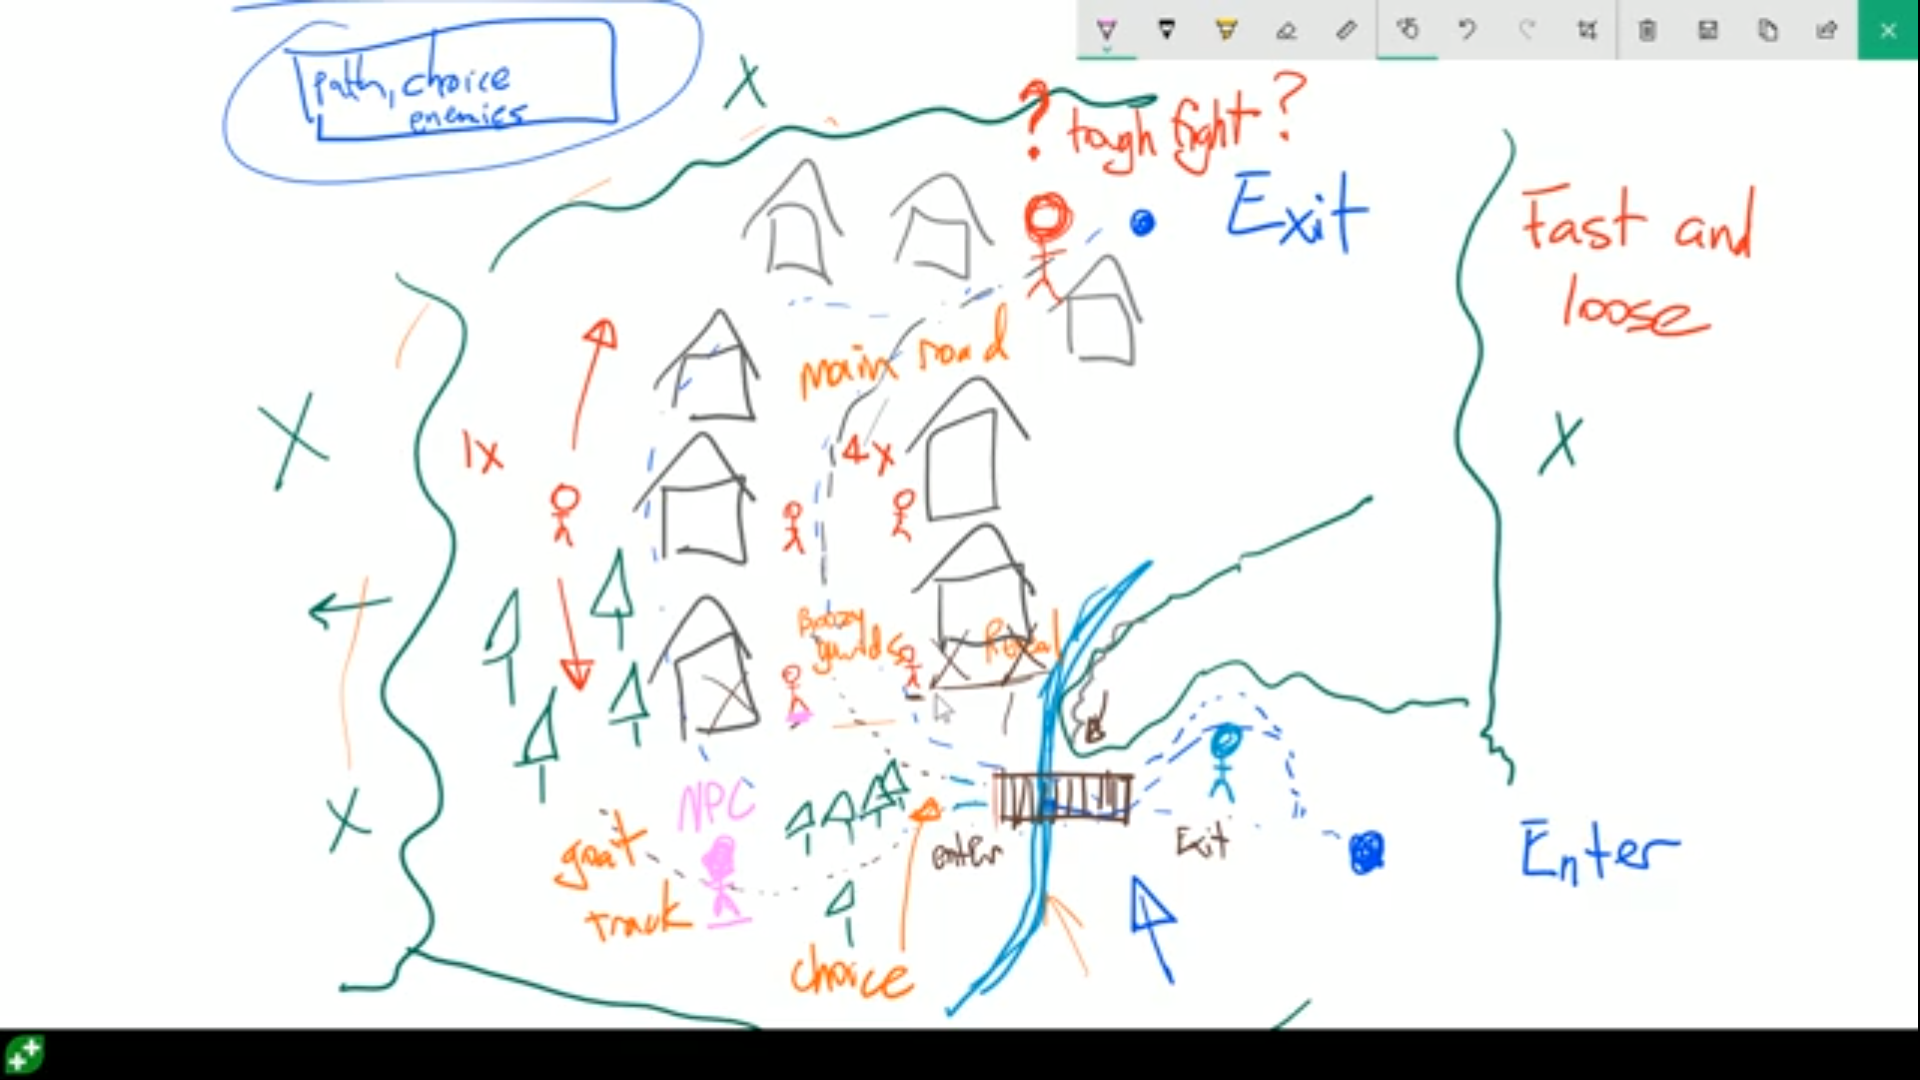 path, choice
enemies
? tough fight?
Exit
Fast and
loose
main road
1x
4x
Boozy
guards
Reveal
NPC
goat
track
enter
Exit
Enter
choice